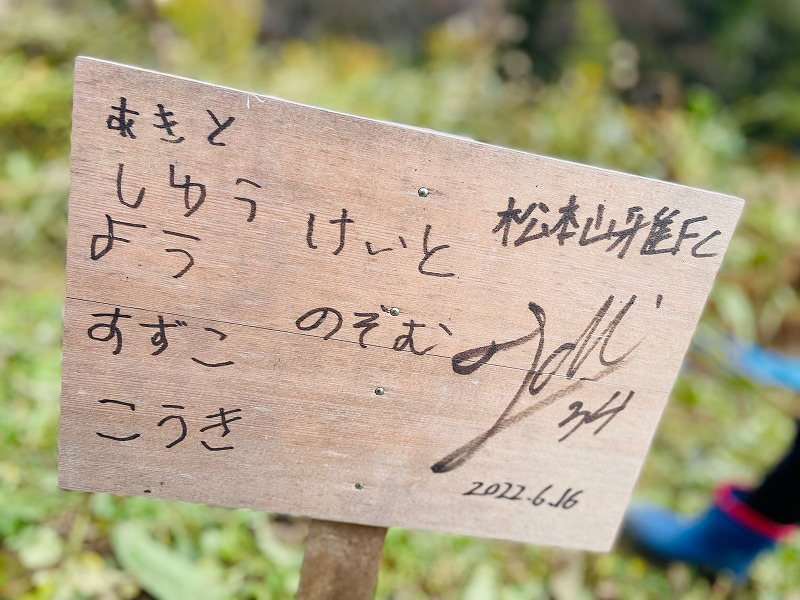 あきと
しゅう
よう
けいと
すずこ
のぞむ
こうき
松本山雅FC
34
2022.6.16